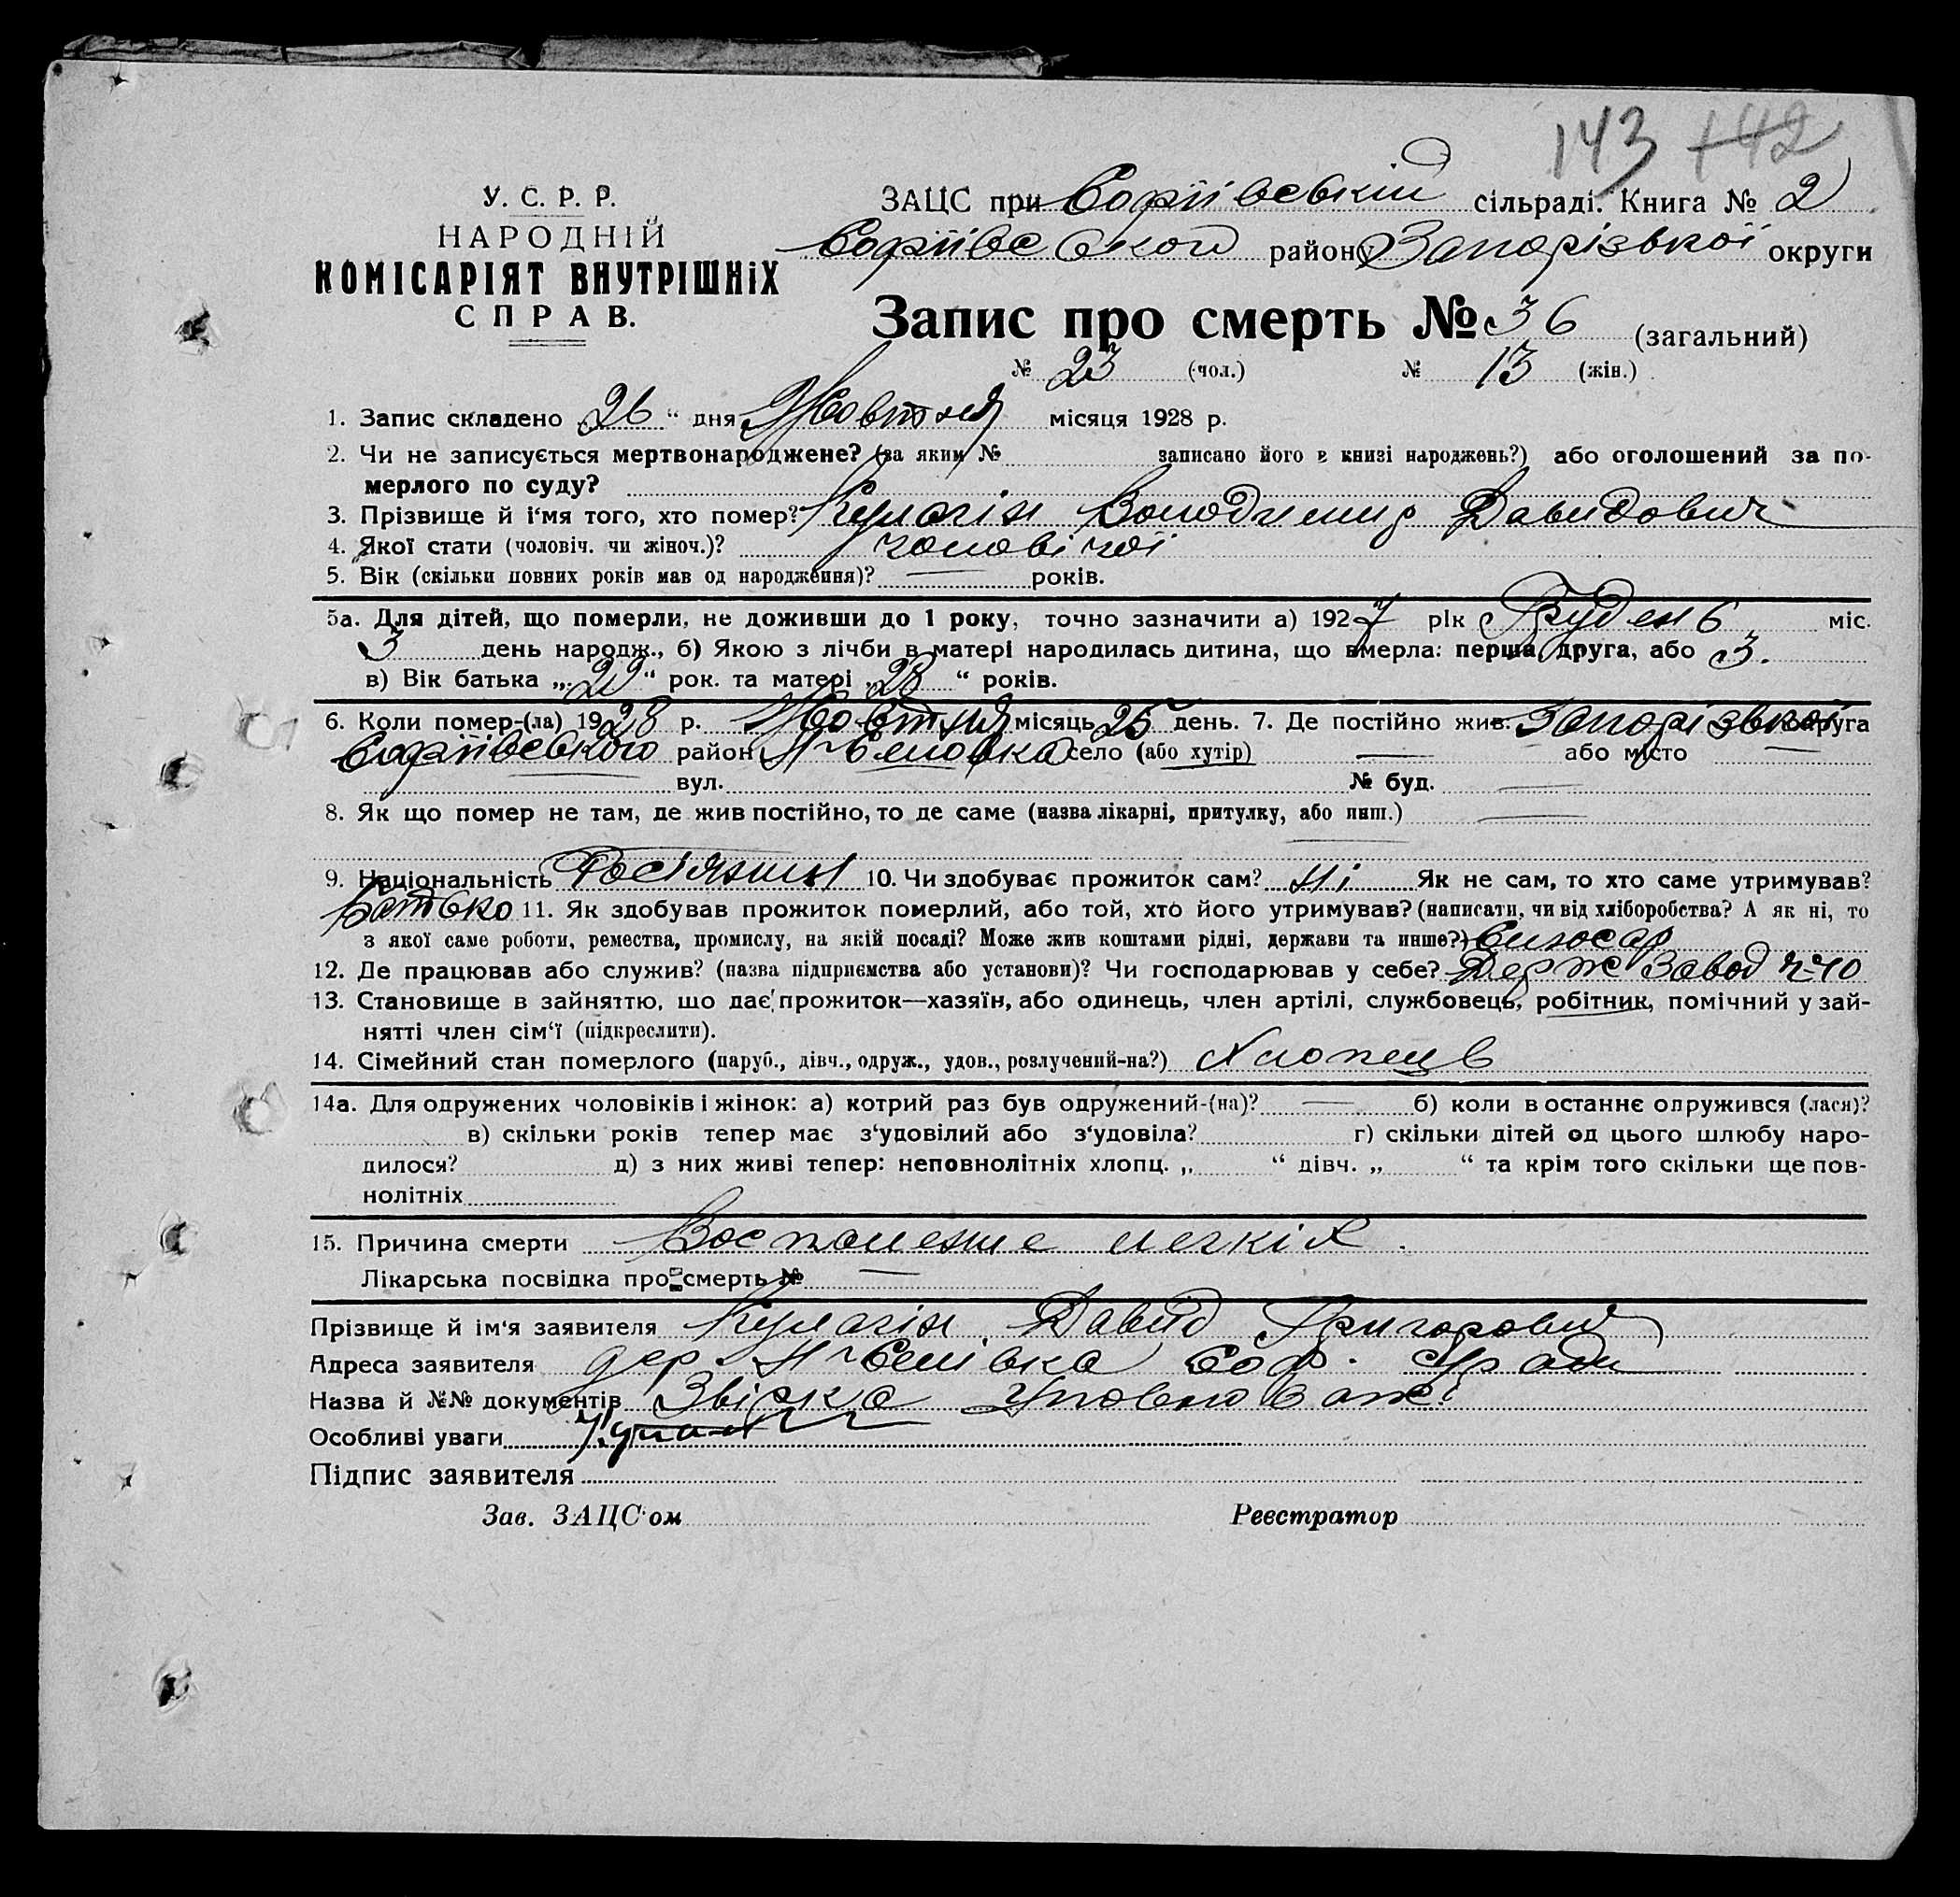 143 142
У. С. Р. Р.
НАРОДНІЙ
КОМІСАРІЯТ ВНУТРІШНІХ
СПРАВ.
ЗАЦС при Софіївській сільраді. Книга № 2
Софіївського району Запорізької округи
Запис про смерть № 36 (загальний)
№ 23 (чол.) № 13 (жін.)
1. Запис складено „26“ дня Жовтня місяця 1928 р.
2. Чи не записується мертвонароджене? (за яким № записано його в книзі народжень?) або оголошений за по-
мерлого по суду?
3. Прізвище й і‘мя того, хто помер? Кулагін Володимир Давидович
4. Якої стати (чоловіч. чи жіноч.)? чоловічої
5. Вік (скільки повних років мав од народження)? — років.
5а. Для дітей, що померли, не доживши до 1 року, точно зазначити а) 1927 рік Грудень міс.
3 день народж., б) Якою з лічби в матері народилась дитина, що вмерла: перша, друга, або 3.
в) Вік батька „ “ рок. та матері „28“ років.
6. Коли помер-(ла) 1928 р. Жовтня місяць 25 день. 7. Де постійно жив: Запорізької округа
Софіївського район село (або хутір) — або місто —
вул. № буд. —
8. Як що помер не там, де жив постійно, то де саме (назва лікарні, притулку, або инш.) —
9. Національність Росіянин 10. Чи здобуває прожиток сам? ні Як не сам, то хто саме утримував?
Батько 11. Як здобував прожиток померлий, або той, хто його утримував? (написати, чи від хліборобства? А як ні, то
з якої саме роботи, ремества, промислу, на якій посаді? Може жив коштами рідні, держави та инше?) Слюсар
12. Де працював або служив? (назва підприємства або установи)? Чи господарював у себе? Держ Завод № 10
13. Становище в зайняттю, що дає прожиток—хазяїн, або одинець, член артілі, службовець, робітник, помічний у зай-
нятті член сім‘ї (підкреслити).
14. Сімейний стан померлого (паруб., дівч., одруж., удов., розлучений-на?) Хлопець
14а. Для одружених чоловіків і жінок: а) котрий раз був одружений-(на)? — б) коли в останнє одружився (лася)?
в) скільки років тепер має з‘удовілий або з‘удовіла? г) скільки дітей од цього шлюбу наро-
дилося? д) з них живі тепер: неповнолітніх хлопц. „ “ дівч. „ “ та крім того скільки ще пов-
нолітніх
15. Причина смерти Воспаление легкіх.
Лікарська посвідка про смерть № —
Прізвище й ім‘я заявителя Кулагін Давид Григорович
Адреса заявителя дер. Соф. с/ради
Назва й №№ документів Звірка
Особливі уваги
Підпис заявителя
Зав. ЗАЦС‘ом Реєстратор